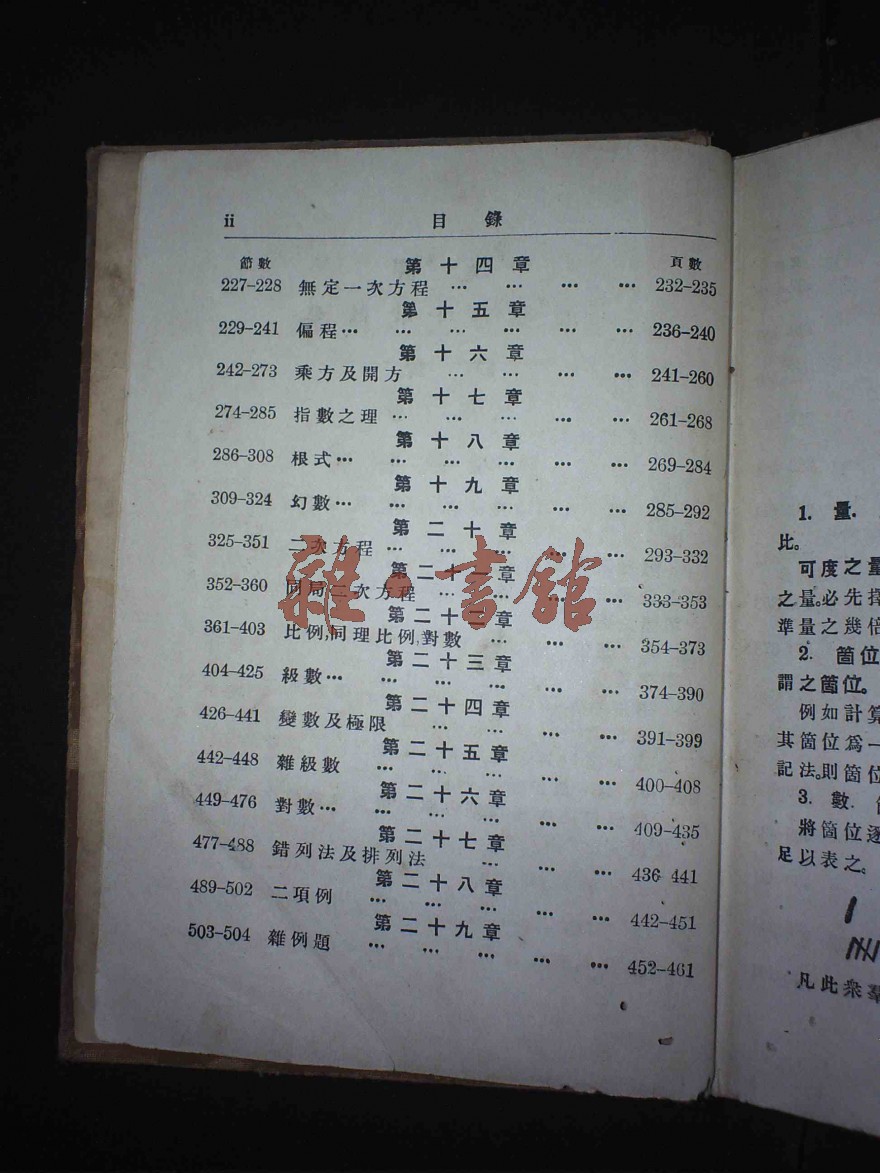 ii 目錄
節數 第十四章 頁數
227–228 無定一次方程 … … … … 232–235
第十五章
229–241 偏程… … … … … … 236–240
第十六章
242–273 乘方及開方 … … … … 241–260
第十七章
274–285 指數之理 … … … … … 261–268
第十八章
286–308 根式… … … … … … 269–284
第十九章
309–324 幻數… … … … … … 285–292
第二十章
325–351 二次方程 … … … … … 293–332
第二十一章
352–360 同局二次方程 … … … … 333–353
第二十二章
361–403 比例,同理比例,對數 … … … 354–373
第二十三章
404–425 級數… … … … … … 374–390
第二十四章
426–441 變數及極限 … … … … 391–399
第二十五章
442–448 雜級數 … … … … … 400–408
第二十六章
449–476 對數… … … … … … 409–435
第二十七章
477–488 錯列法及排列法 … … … 436–441
第二十八章
489–502 二項例 … … … … … 442–451
第二十九章
503–504 雜例題 … … … … … 452–461
雜·書館
1. 量.
比。
可度之量
之量。必先擇
準量之幾倍
2. 箇位
謂之箇位。
例如計算
其箇位爲一
記法。則箇位
3. 數.
將箇位逐
足以表之。
凡此衆羣